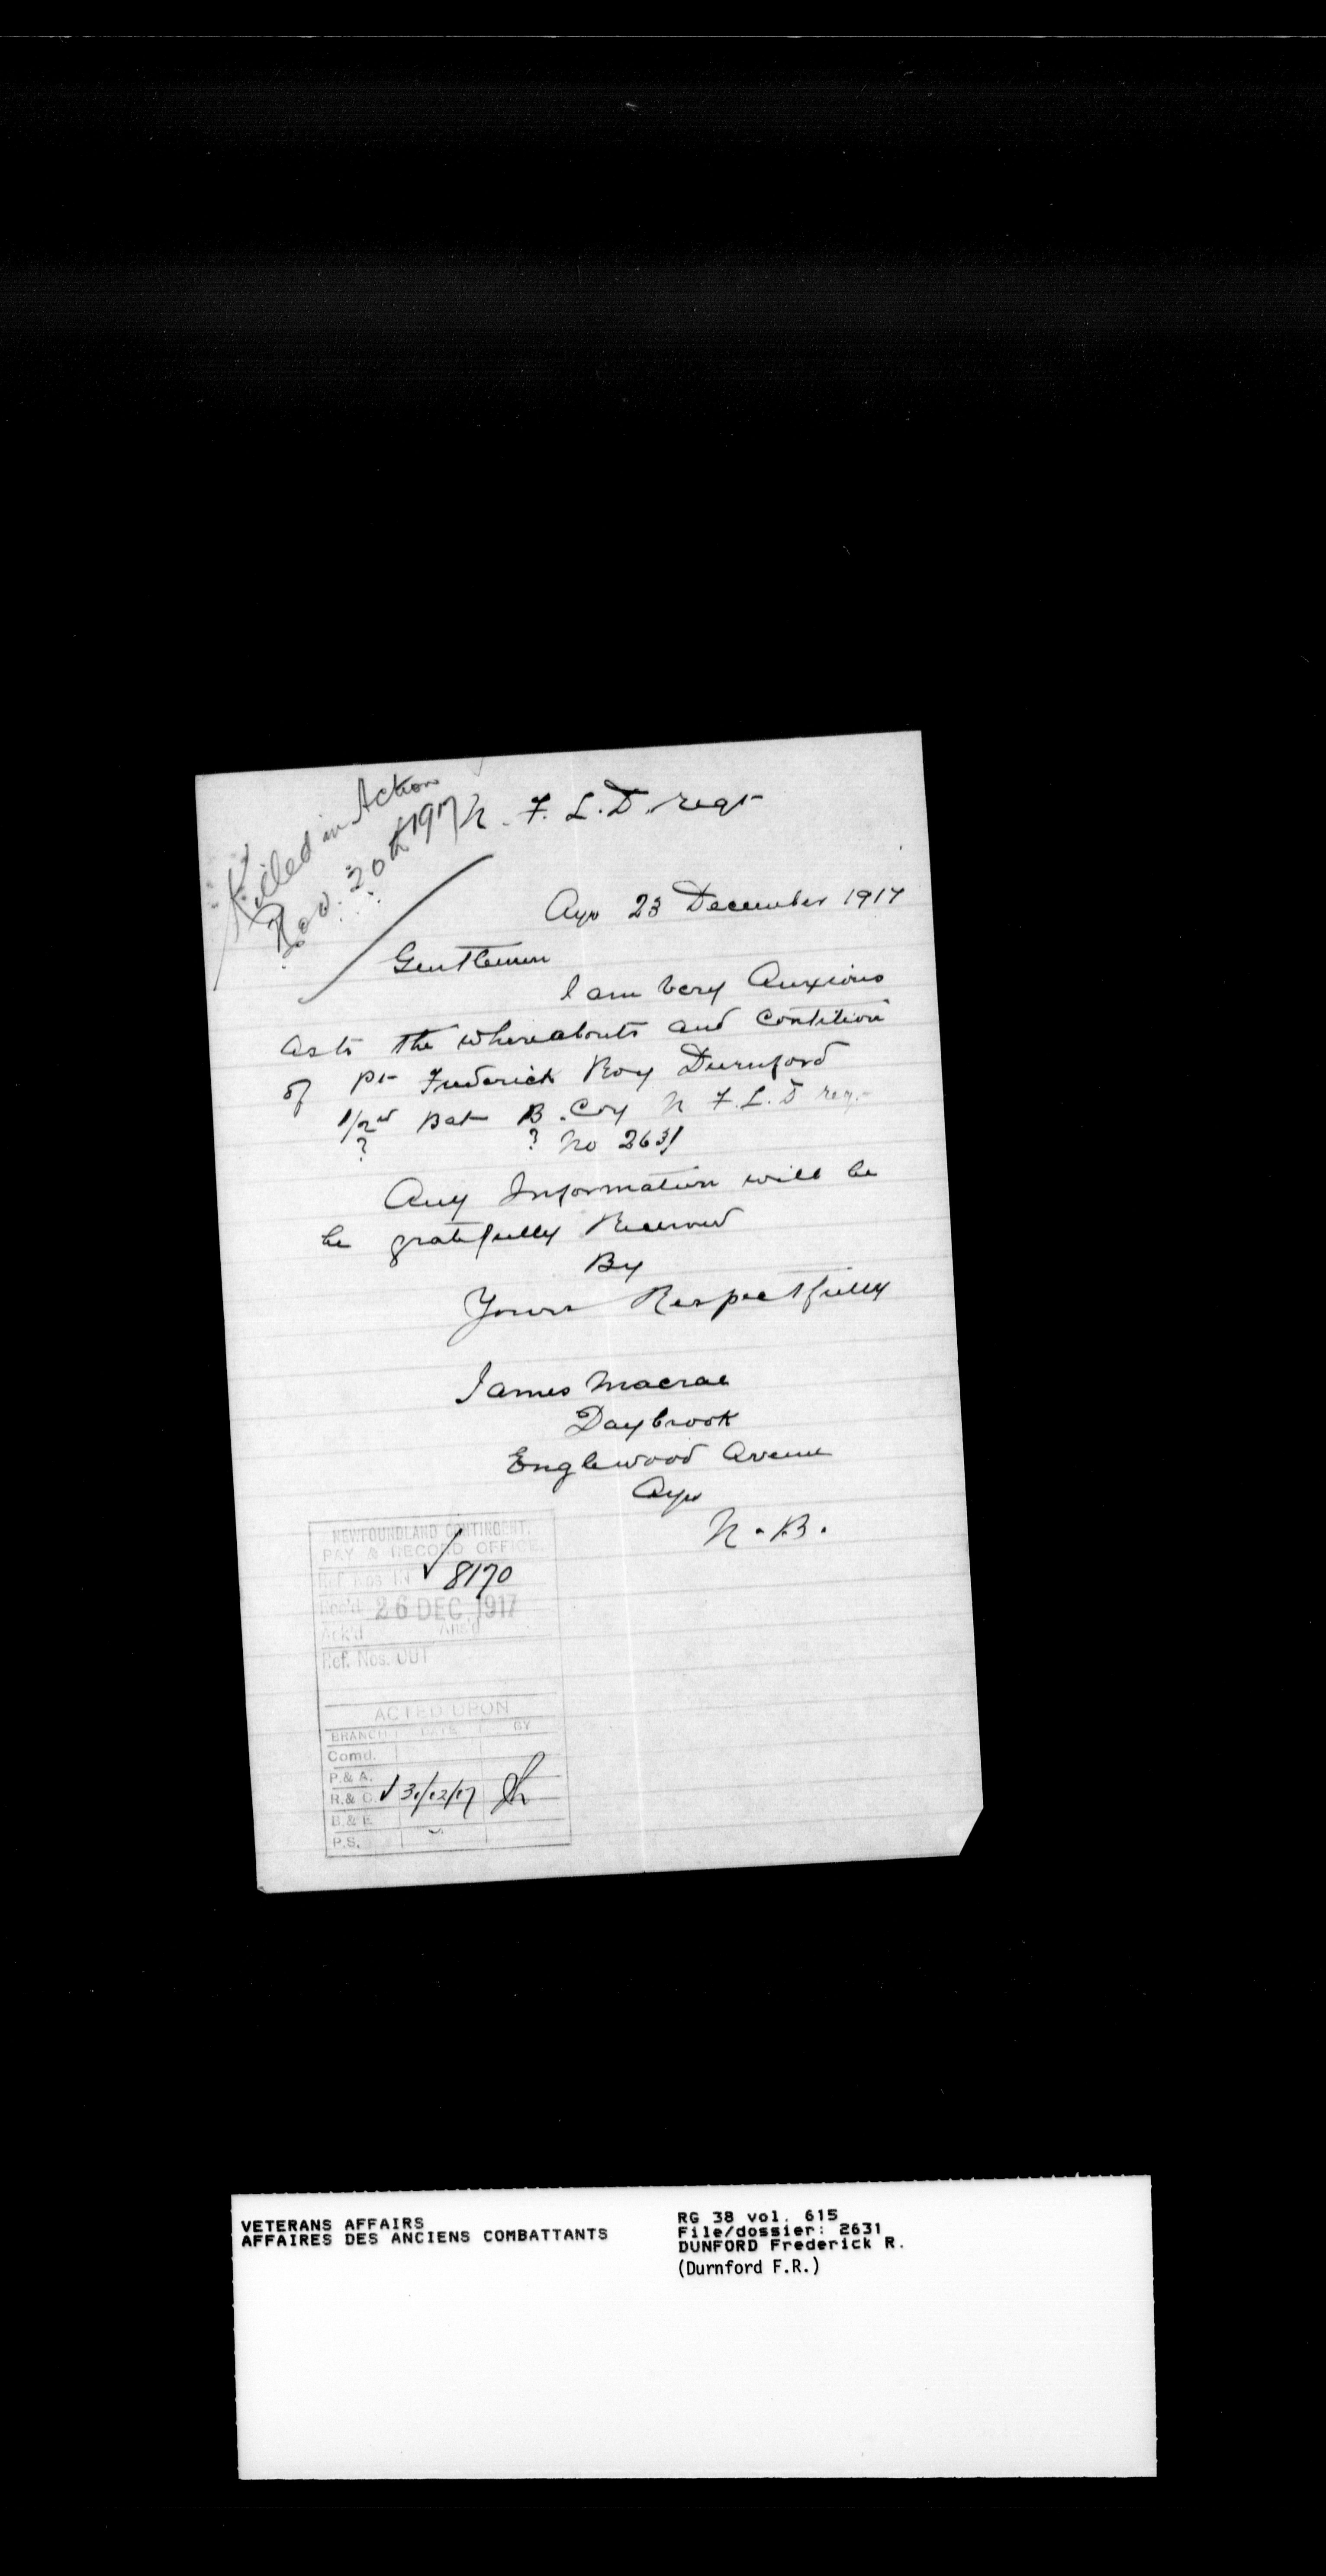 Killed in Action
Nov. 20th 1917
N. F. L. D. regt
Ayr 23 December 1917
Gentlemen
I am very Anxious
as to the whereabouts and Contition
of Pt Frederick Roy Durnford
1/2nd Bat B. Coy N F. L. D reg.
? ? No 2631
Any Information will be
be gratefully Received
By
Yours Respectfully
James Macrae
Daybrook
Englewood Avenue
Ayr
N. B.
NEWFOUNDLAND CONTINGENT.
PAY & RECORD OFFICE.
Ref. Nos. IN 8170
Rec'd 26 DEC 1917
Ack'd Ans'd
Ref. Nos. OUT
ACTED UPON
BRANCH DATE BY
Comd.
P. & A.
R. & C. 31/12/17
B. & F.
P.S.
VETERANS AFFAIRS
AFFAIRES DES ANCIENS COMBATTANTS
RG 38 vol. 615
File/dossier: 2631
DUNFORD Frederick R.
(Durnford F.R.)